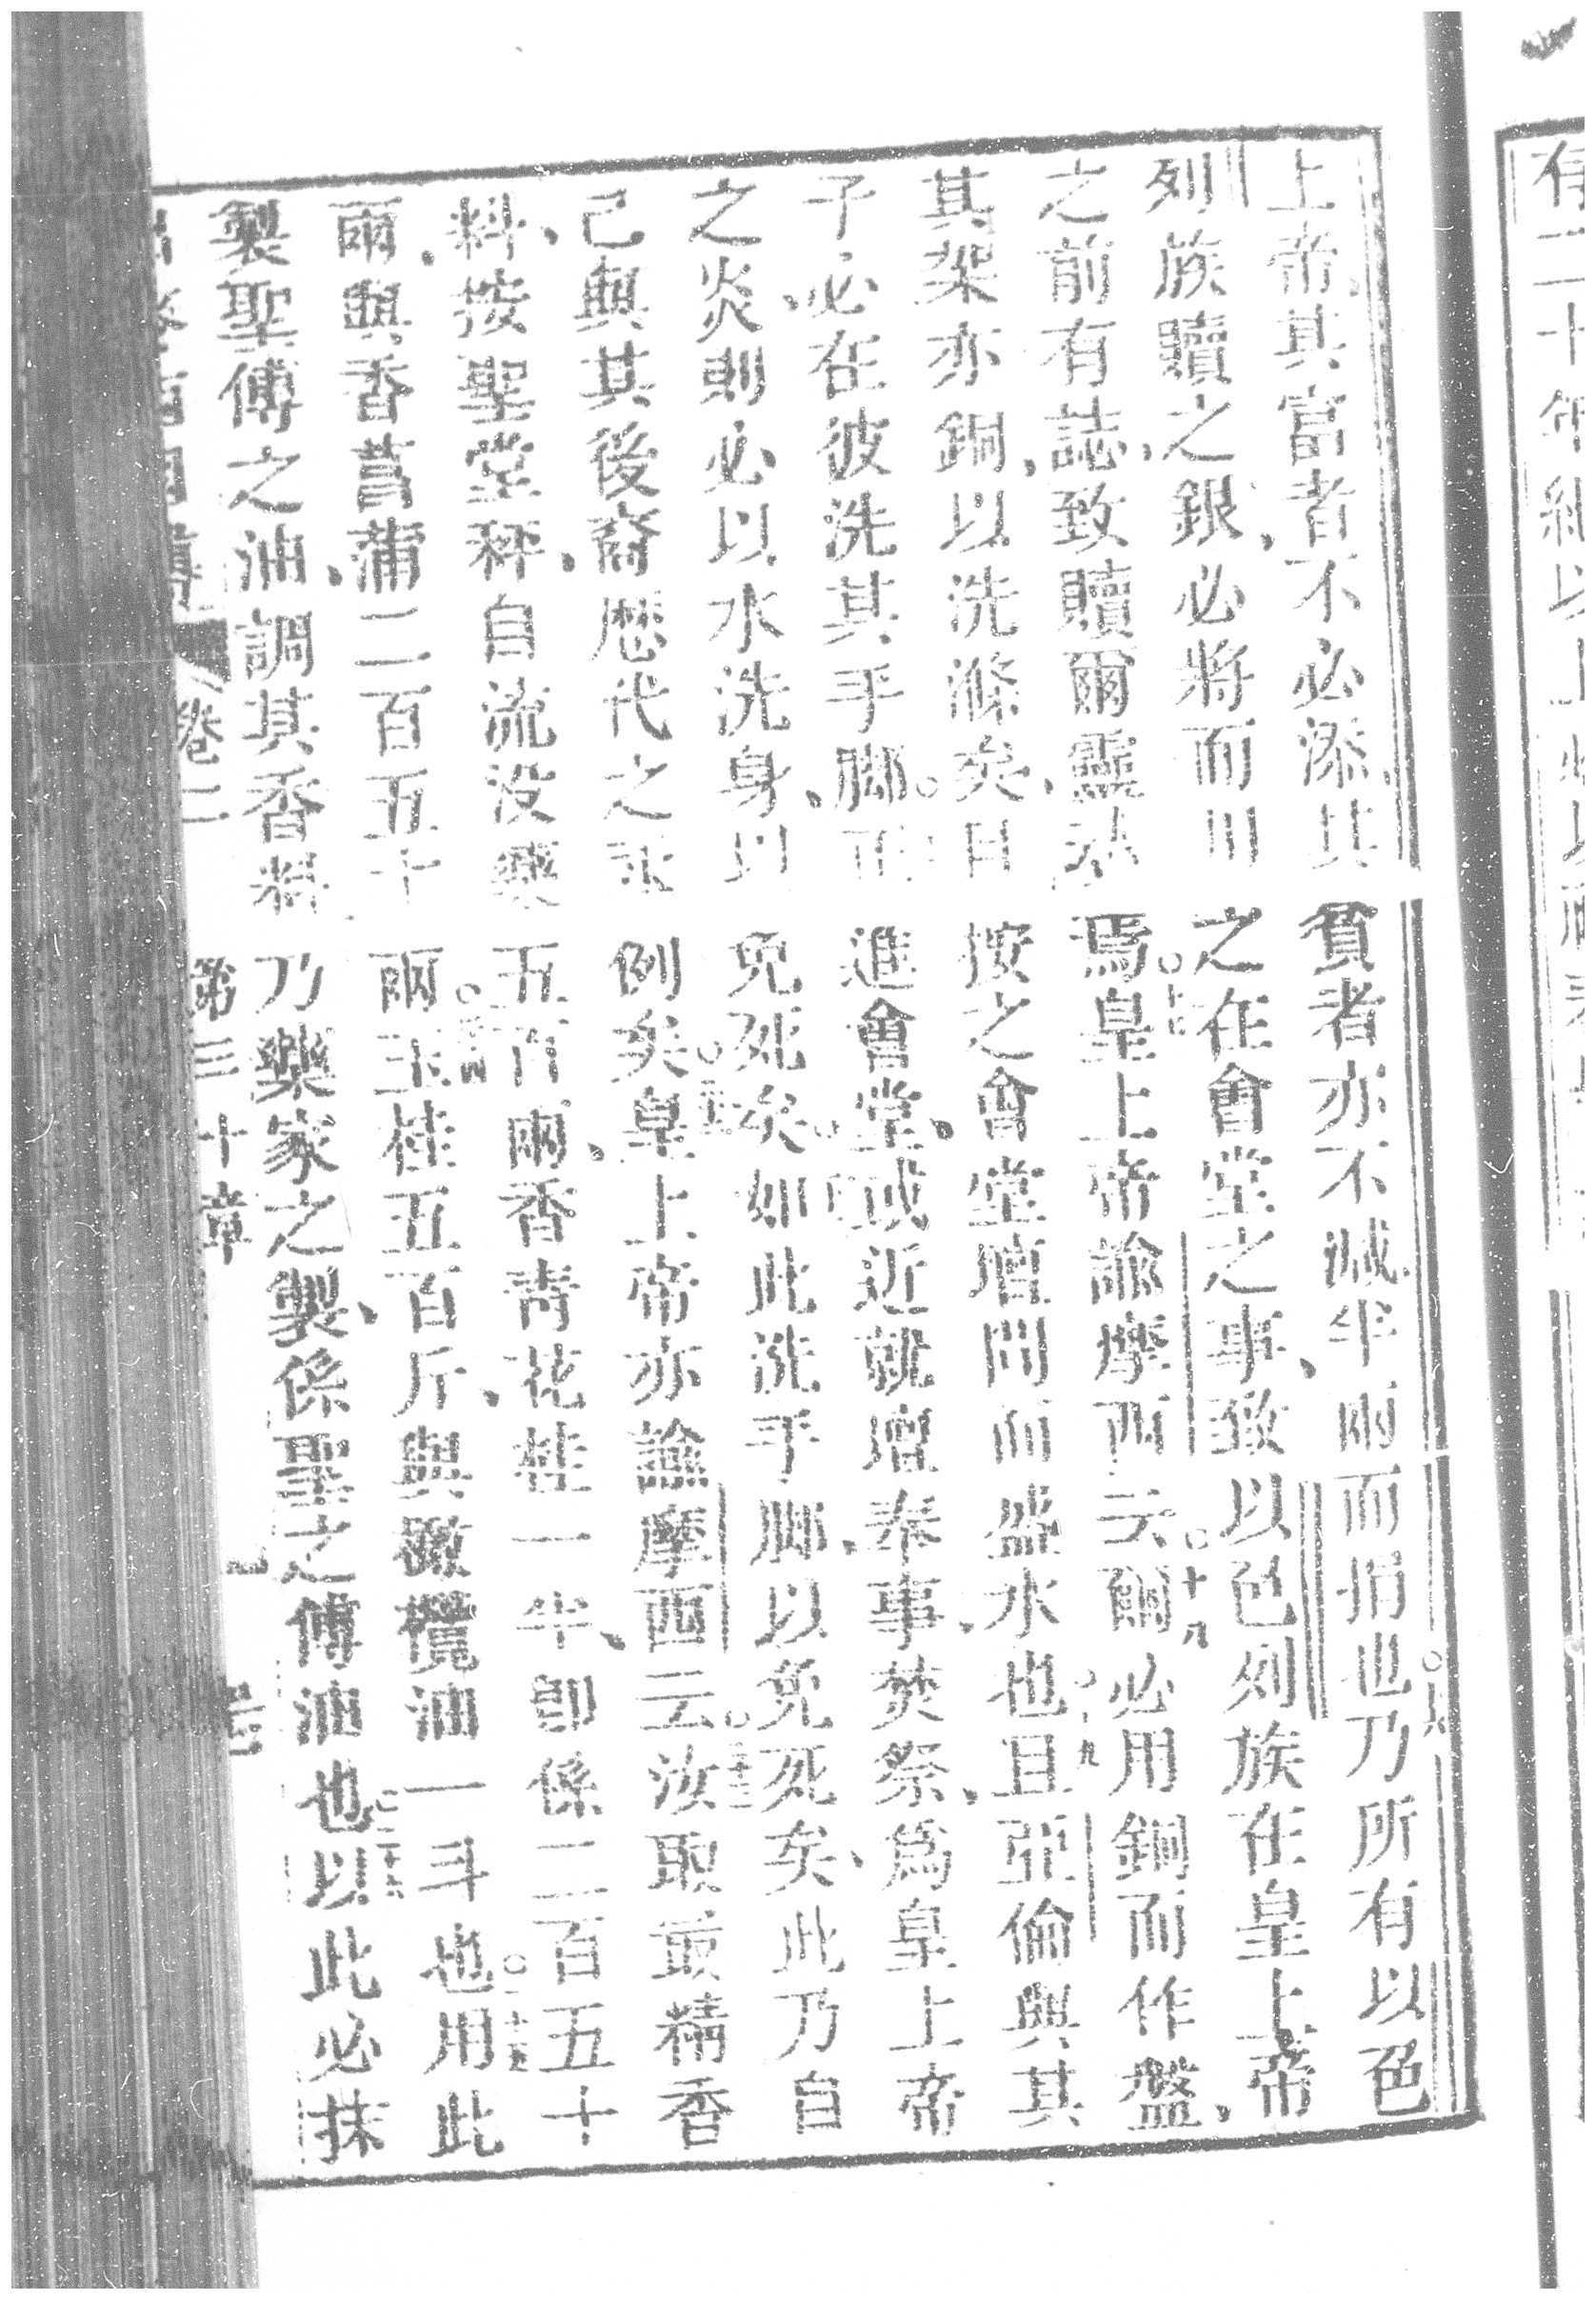 上帝、其富者不必添、其貧者亦不減半兩而捐也○十六乃所有以色
列族贖之銀、必將而用之在會堂之事、致以色列族在皇上帝
之前有誌、致贖爾靈焉○十七皇上帝諭摩西云○十八爾必用銅而作盤、
其架亦銅、以洗滌矣、按之會堂壇間而盛水也○十九且亞倫與其
子、必在彼洗其手脚。進會堂、或近就壇奉事、焚祭、為皇上帝
之炎、則必以水洗身、以免死矣。如此洗手脚、以免死矣、此乃自
己與其後裔歷代之例矣皇上帝亦諭摩西云汝取最精香
料、按聖堂秤、自流沒藥五百兩、香青花桂一半、即係二百五十
兩、與香菖蒲二百五十兩玉桂五百斤、與橄欖油一斗也用此
製聖傅之油、調其香料乃藥家之製、係聖之傅油也以此必抹
卷二 第三十章